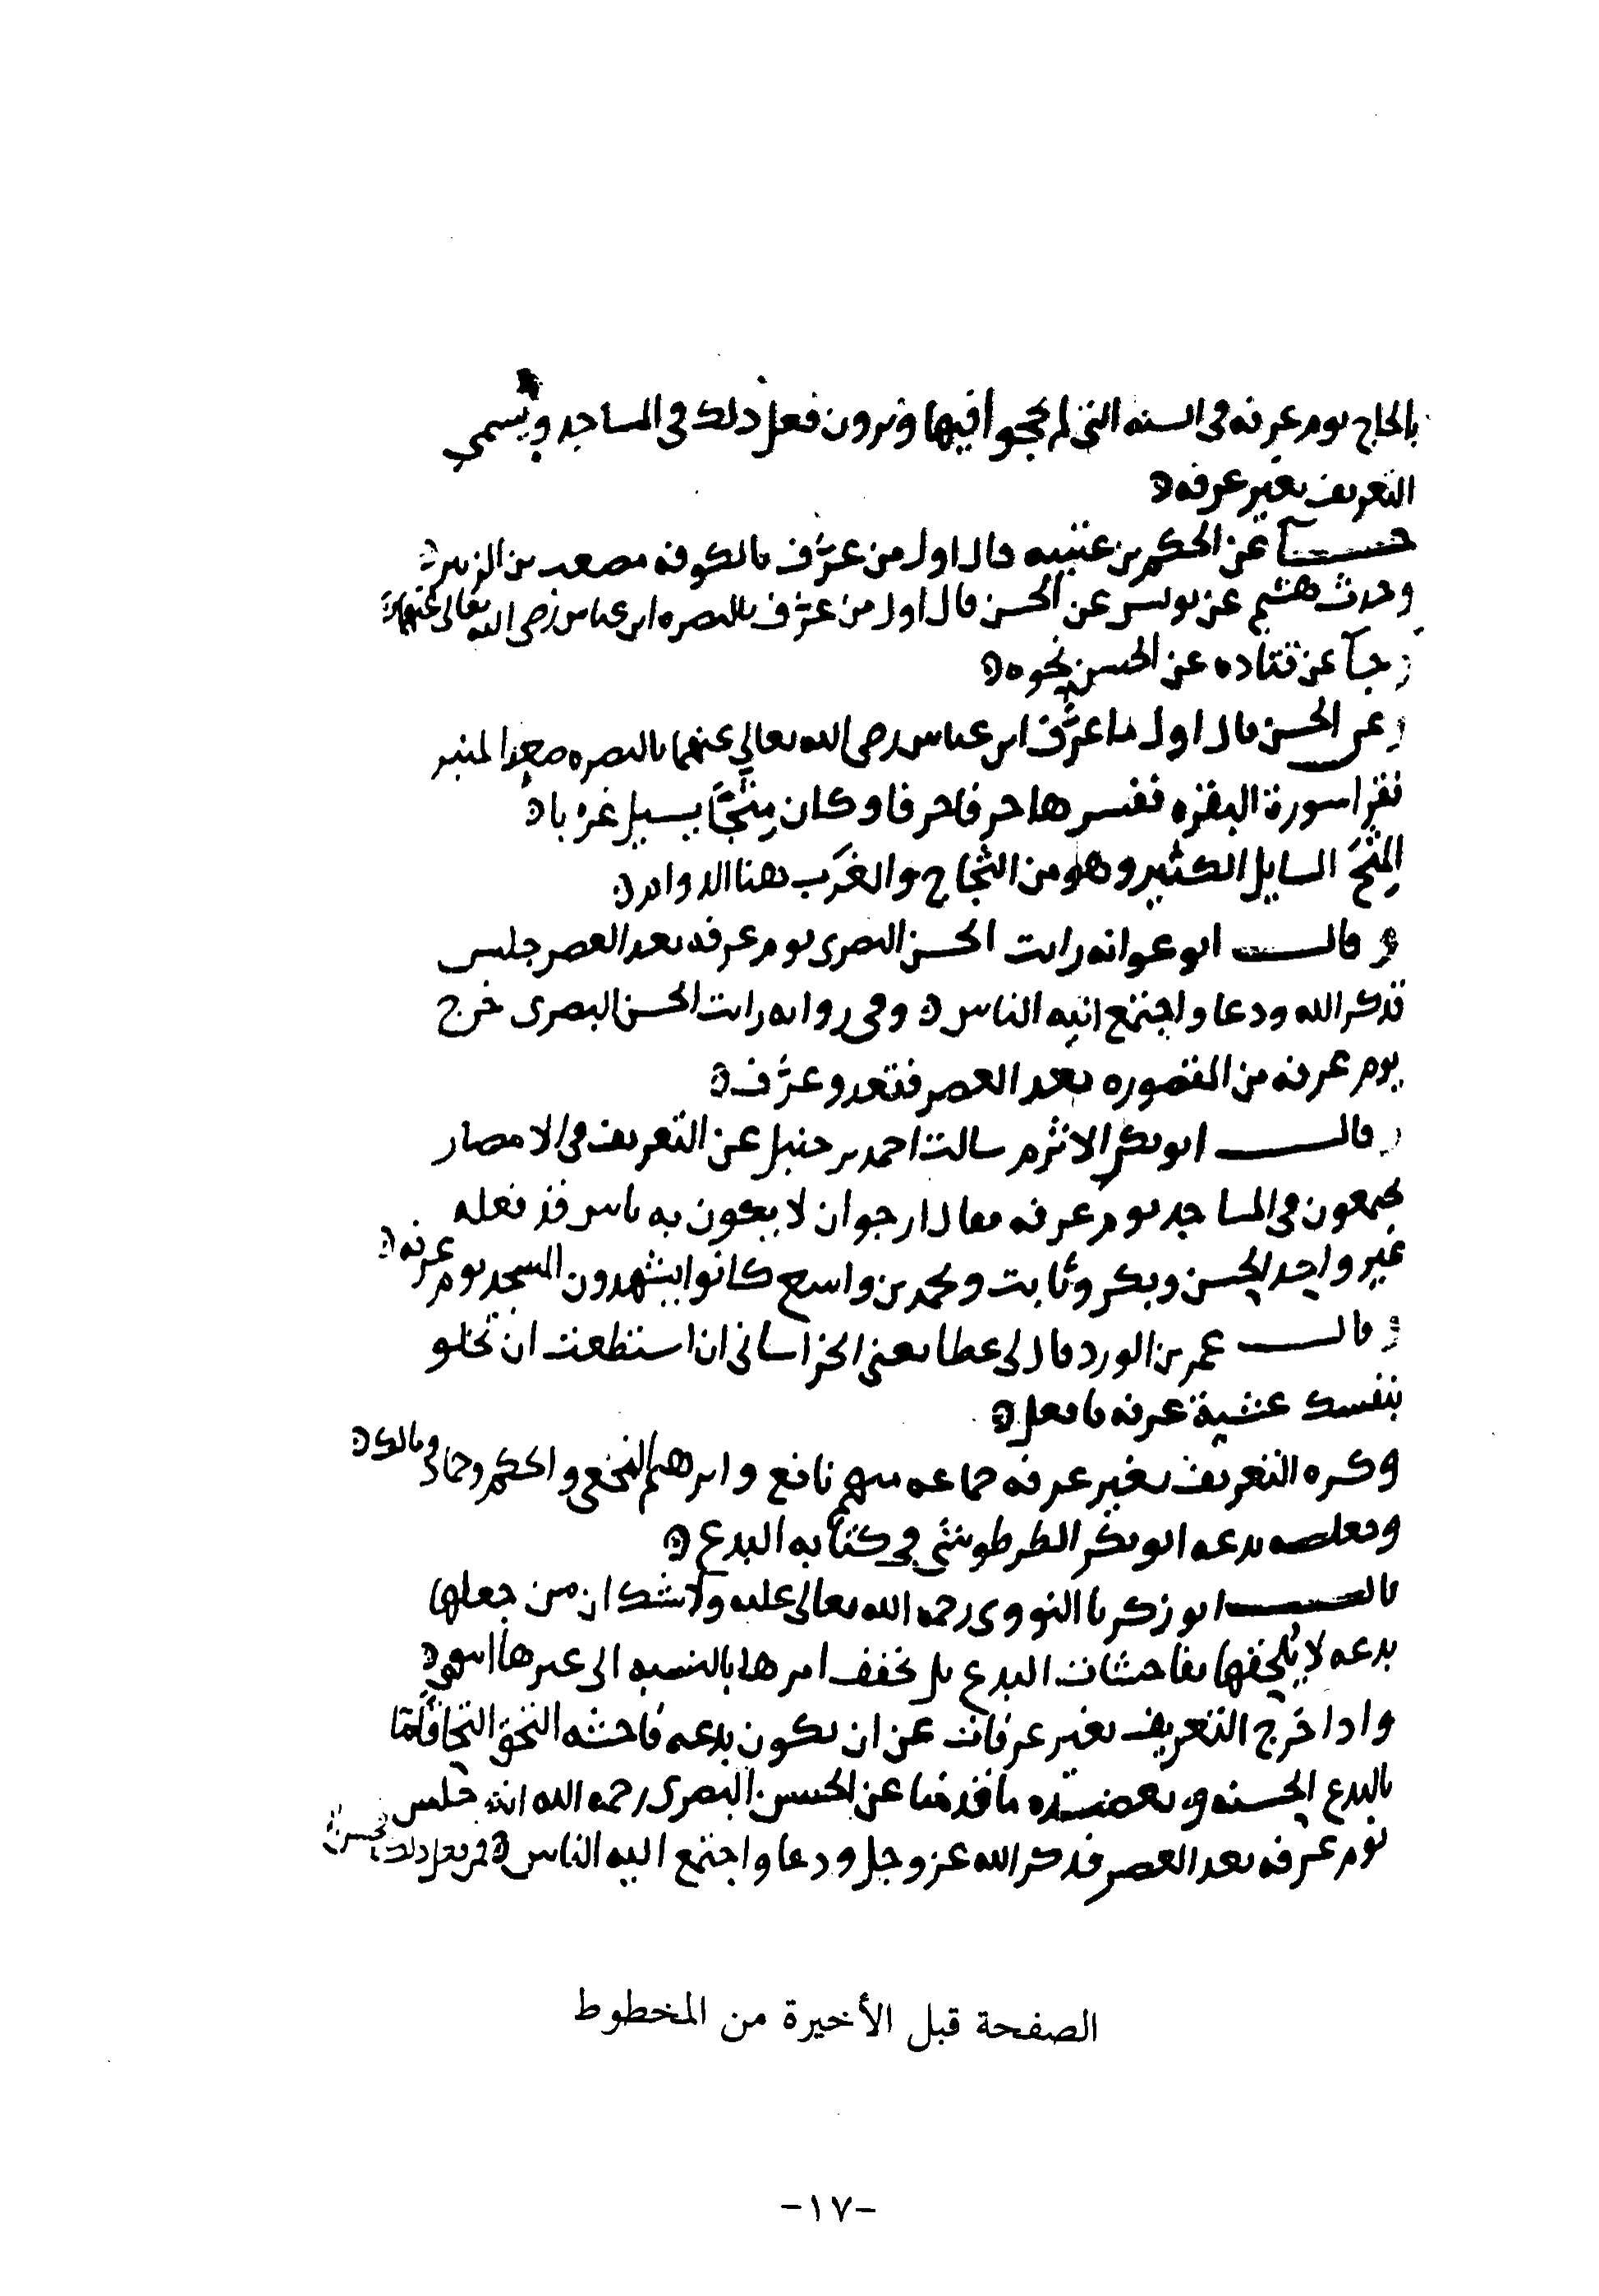 بالحاج يوم عرفه في السنه التي لم يحجوا فيها ويرون فعل ذلك في المساجد ويسمى
التعريف بغير عرفه
عن الحكم بن عتيبه قال اول من عرَّف بالكوفه مصعب بن الزبير
وحدث هشيم عن يونس عن الحسن قال اول من عرَّف بالبصره ابن عباس رضي الله تعالى عنهما
عن قتاده عن الحسن نحوه
وعن الحسن قال اول ما عرَّف ابن عباس رضي الله تعالى عنهما بالبصره صعد المنبر
فقرا سورة البقره ففسرها حرفا حرفا وكان مِثَجًّا يسيل غربا
المِثَجُّ السايل الكثير وهو من الثجاج والغَرْب هنا الدوام
وقال ابو عوانه رايت الحسن البصرى يوم عرفه بعد العصر جلس
فذكر الله ودعا واجتمع اليه الناس وفي روايه رايت الحسن البصرى خرج
يوم عرفه من المقصوره بعد العصر فقعد وعرَّف
وقال ابو بكر الاثرم سالت احمد بن حنبل عن التعريف في الامصار
يجتمعون في المساجد يوم عرفه فقال ارجو ان لا يكون به باس قد فعله
غير واحد الحسن وبكر وثابت ومحمد بن واسع كانوا يشهدون المسجد يوم عرفه
وقال عمر بن الورد قال لي عطا يعني الخراساني ان استطعت ان تخلو
بنفسك عشية عرفه فافعل
وكره التعريف بغير عرفه جماعه منهم نافع وابرهيم النخعي والحكم وحماد ومالك
بدعه ابو بكر الطرطوشي في كتابه البدع
قال ابو زكريا النووى رحمه الله تعالى عليه ولا شك ان من جعلها
بدعه لا يُلحقها بفاحشات البدع بل يخفف امرها بالنسبه الى غيرها انتهى
واذا خرج التعريف بغير عرفات عن ان يكون بدعه فاحشه التحق التحاقا
بالبدع الحسنه ويعضده ما قدمنا عن الحسن البصرى رحمه الله انه جلس
يوم عرفه بعد العصر فذكر الله عز وجل ودعا واجتمع اليه الناس فعل ذلك
الصفحة قبل الأخيرة من المخطوط
-١٧-